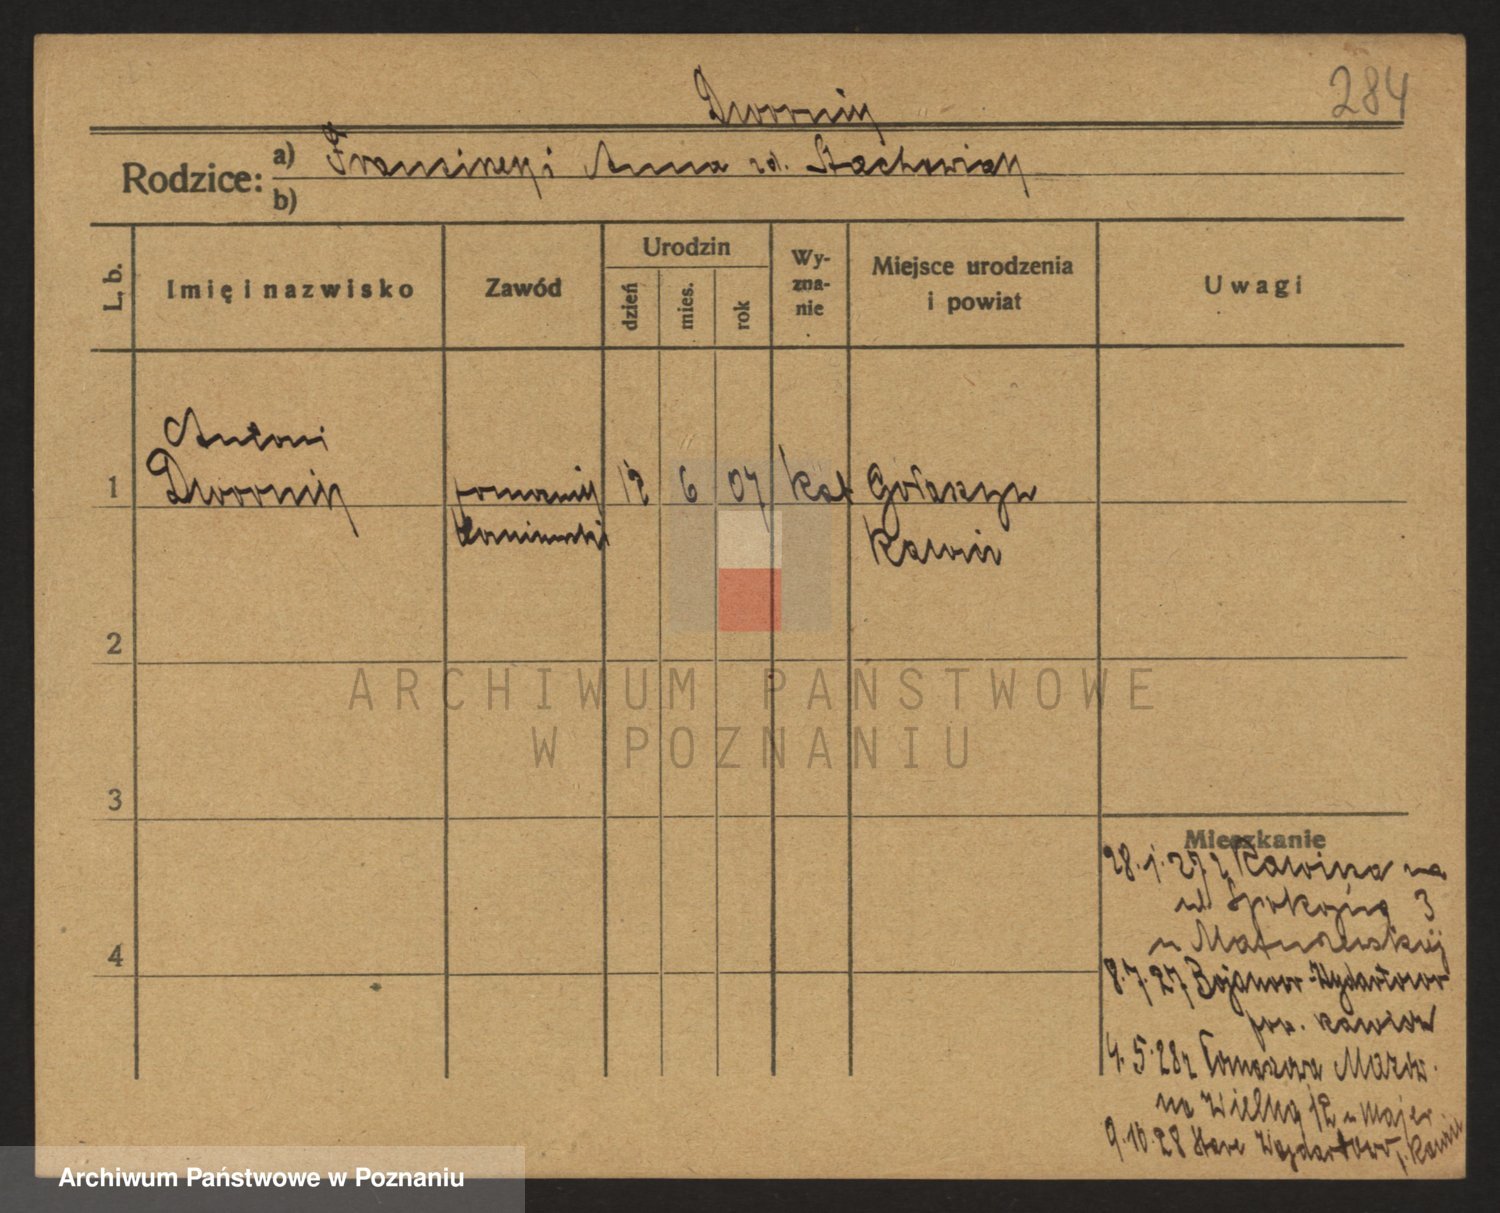 284
Dwornik
Rodzice: a) Franciszek i Anna zd. Stachowiak
b)
L. b.
Imię i nazwisko
Zawód
Urodzin
dzień
mies.
rok
Wy-
zna-
nie
Miejsce urodzenia
i powiat
Uwagi
Antoni
1 Dwornik 12 6 07 kat
Rawicz
2
3
4
ARCHIWUM PAŃSTWOWE
W POZNANIU
Mieszkanie
28.1.27 z Rawicza na
ul Spokojną 3
u Matuszewskiej
8.7.27 Bojanowo-Wydartowo
pow. Rawicz
4.5.28 z Tomaszowa Mazow.
na Wielką 12 u Majer
9.10.28 Stare
Archiwum Państwowe w Poznaniu